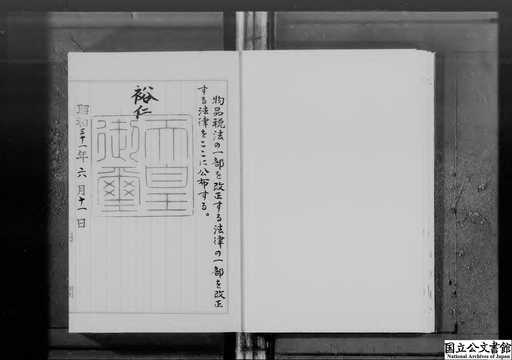 物品税法の一部を改正する法律の一部を改正
する法律をここに公布する。
裕仁
天皇御璽
昭和三十一年六月十一日
国立公文書館
National Archives of Japan